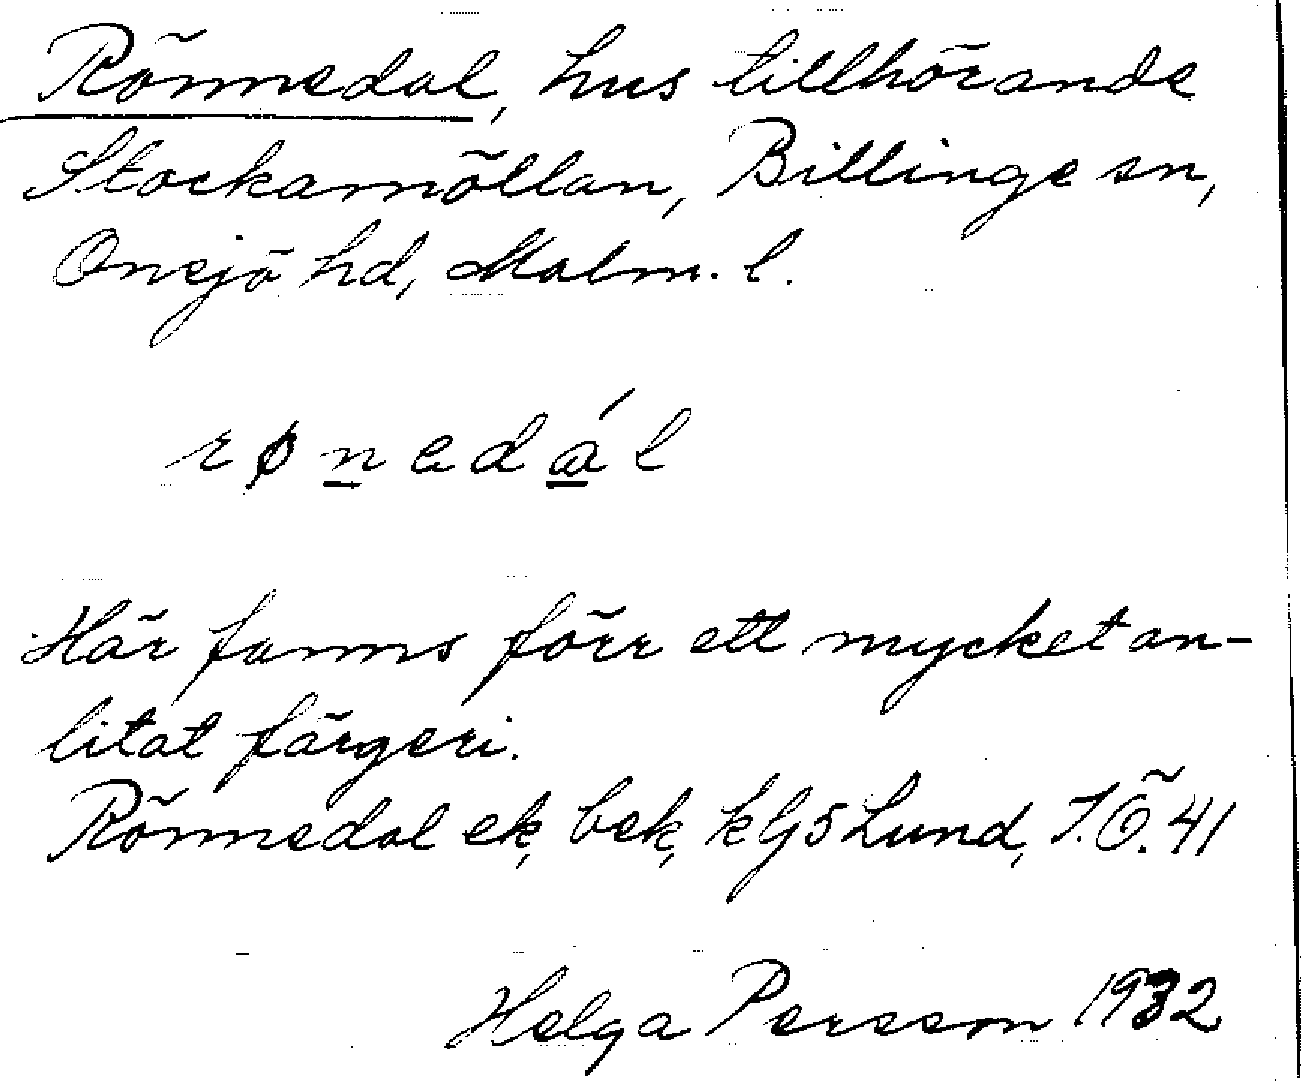 Rönnedal, hus tillhörande
Stockamöllan, Billinge sn,
Onsjö hd, Malm. l.
rønedál
Här fanns förr ett mycket an-
litat färgeri.
Rönnedal ek, bek, Lund, J.Ö. 41
Helga Persson 1932